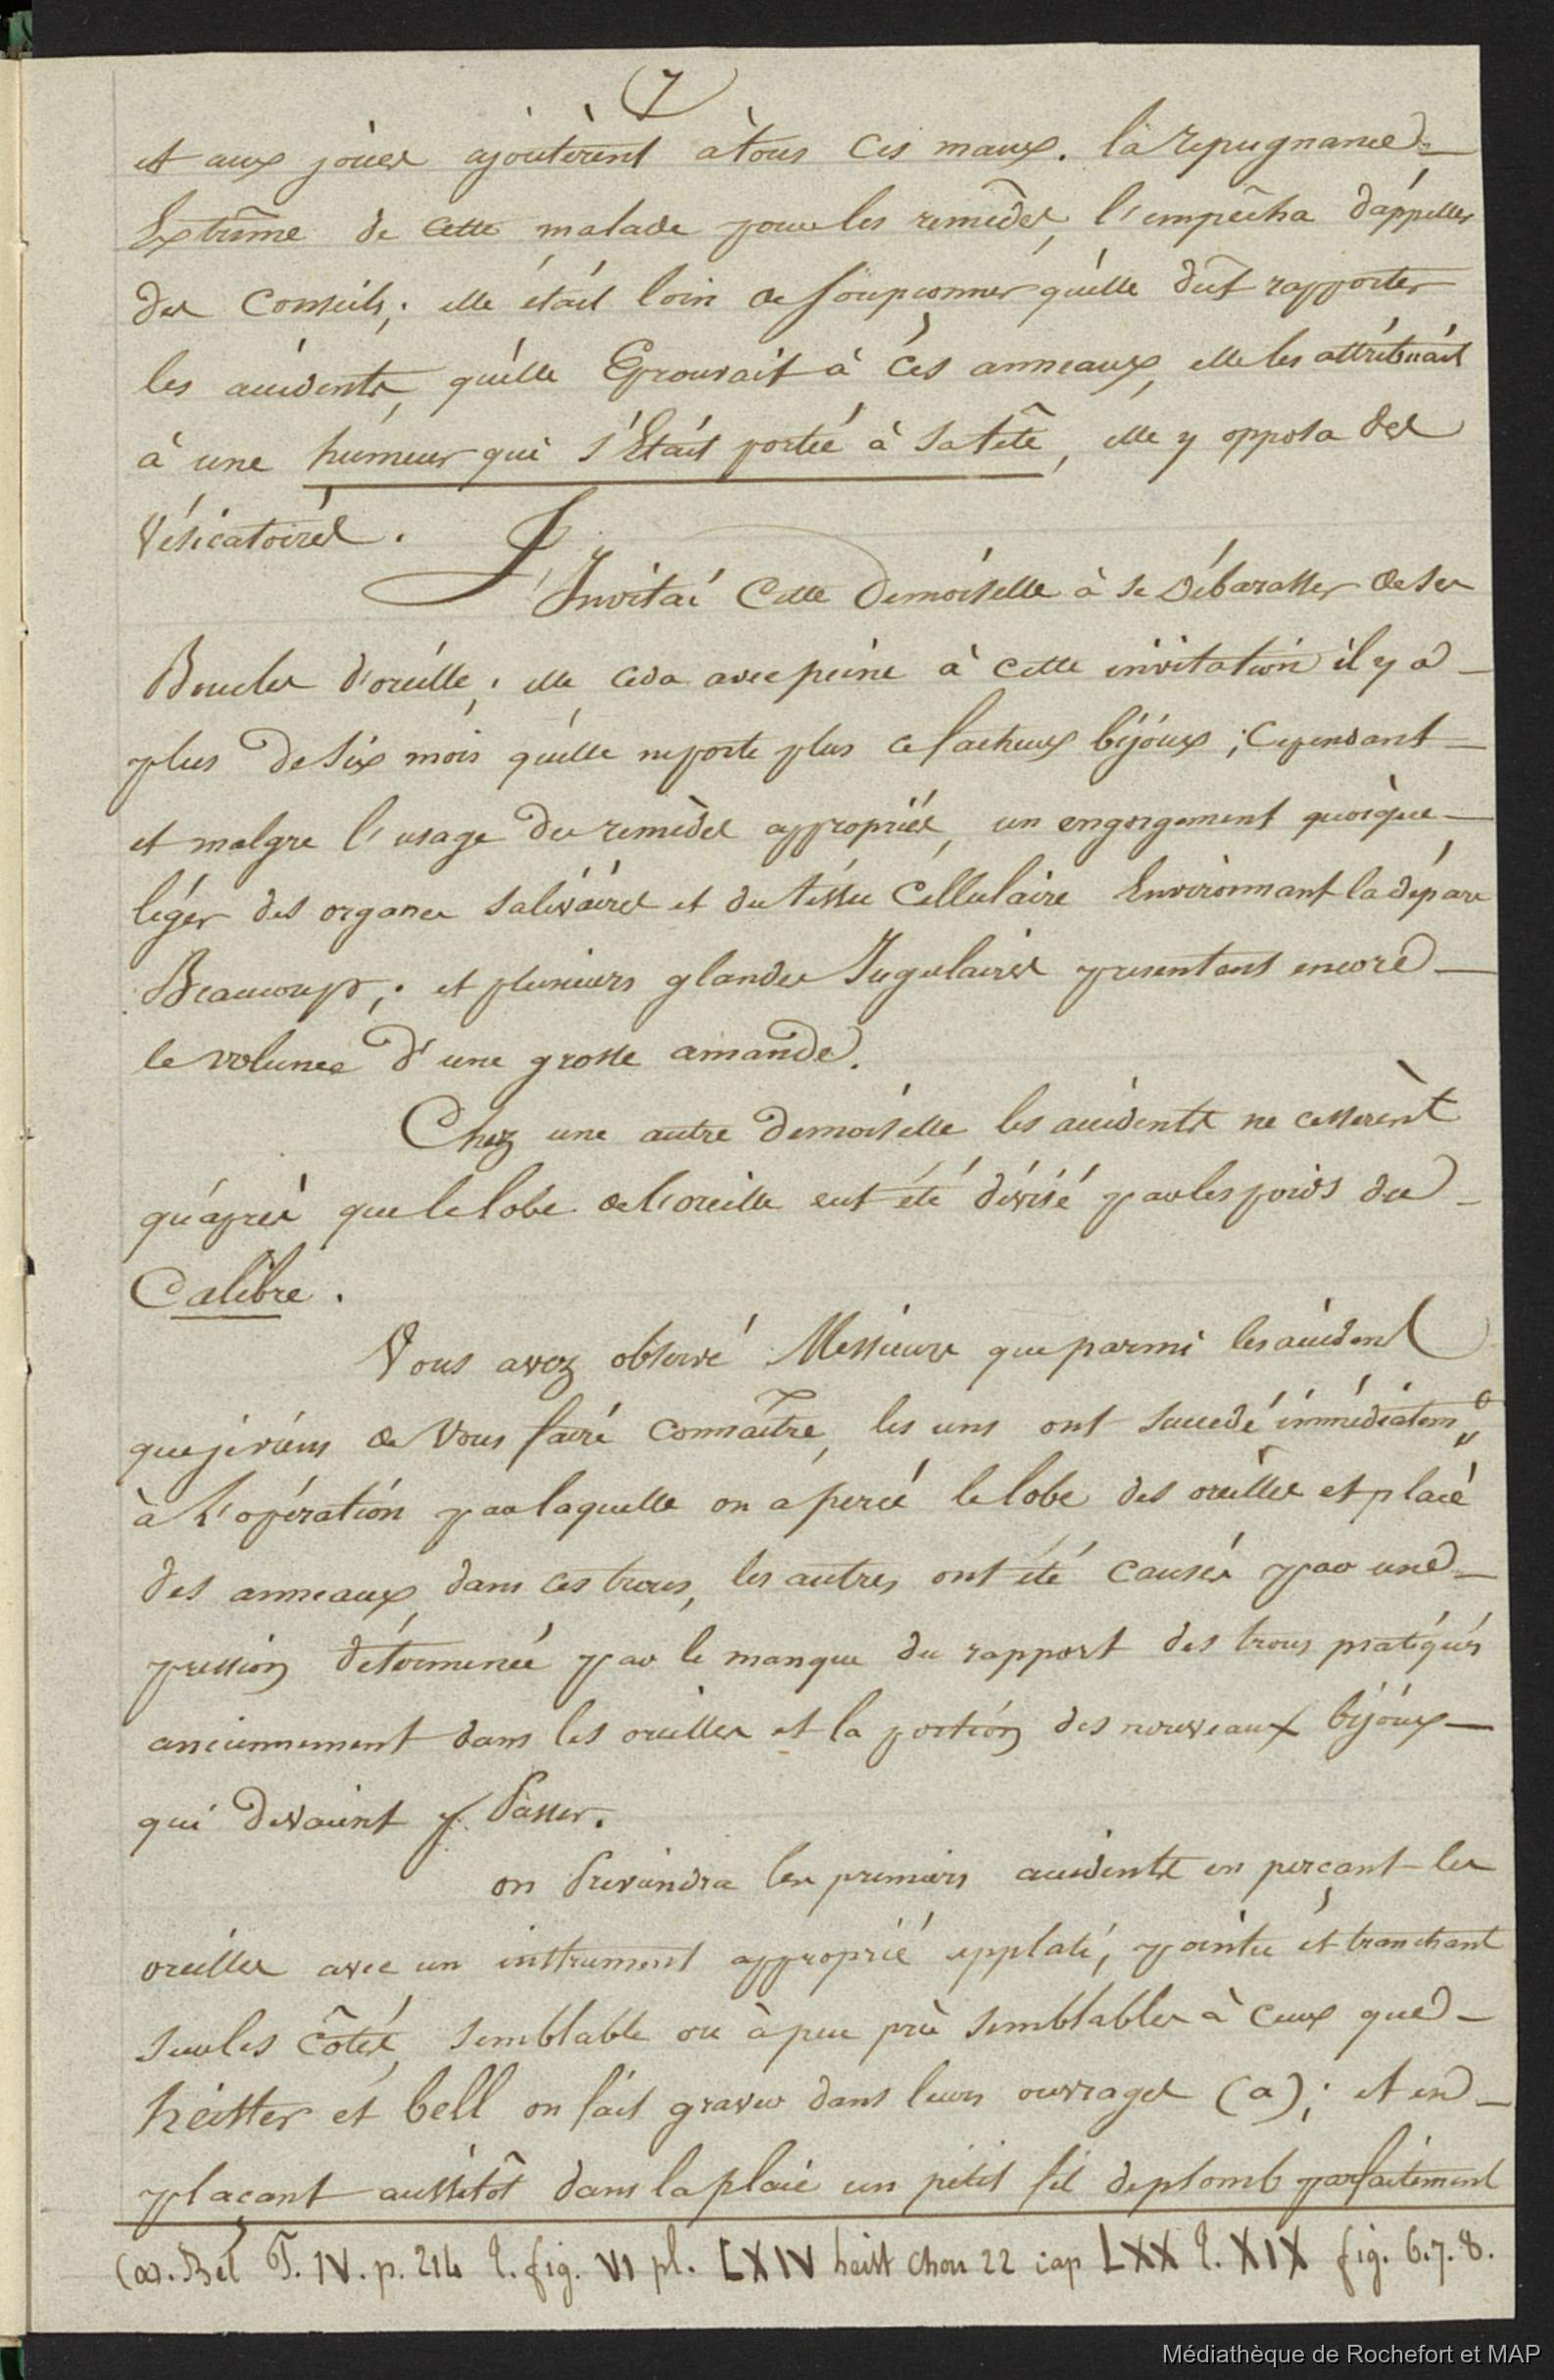 7
et aux joües ajoutèrent à tous ces maux. la repugnance
Extrême de cette malade pour les remèdes, l'empêcha d'appeller
des Conseils; elle était loin de soupçonner qu'elle dût rapporter
les accidents, qu'elle Eprouvait à ces anneaux, elle les attribuait
à une humeur qui s'Etait portée à sa tête, elle y opposa des
Vésicatoires.
J'Invitai Cette Demoiselle à se Débarasser de ses
Boucles d'oreille; elle ceda avec peine à cette invitation il y a
plus de Six mois qu'elle ne porte plus ce facheux bijoux; Cependant
et malgre l'usage des remèdes appropriés, un engorgement quoique
léger des organes salivaires et du tissu Céllulaire Environnant la dépare
Beaucoup; et plusieurs glandes Jugulaires presentent encore
le volume d'une grosse amande.
Chez une autre Demoiselle les accidents ne cesserent
qu'après que le lobe de l'oreille eut été divisé par les poids du
Calibre.
Vous avez observé Messieurs que parmi les accidents
que je viens de Vous faire Connaître, les uns ont succedé immédiatem.t
à L'opération par laquelle on a percé le lobe des oreilles et placé
des anneaux dans ces trous, les autres ont été causés par une
pression déterminée par le manque du rapport des trous pratiqués
anciennement dans les oreilles et la portion des nouveaux bijoux
qui Devaient y Passer.
on Previendra les premiers accidents en perçant les
oreilles avec un instrument approprié applati, pointu et tranchant
sur les côtés, semblable ou à peu près semblables à Ceux que
heister et bell on fait graver dans leurs ouvrages (a); et en
plaçant aussitôt dans la plaie un pétit fil de plomb parfaitement
(a). Bel T. IV. p. 214 l. fig. VI pl. LXIV heist Chon 22 cap LXX l. XIX fig. 6.7.8.
Médiathèque de Rochefort et MAP